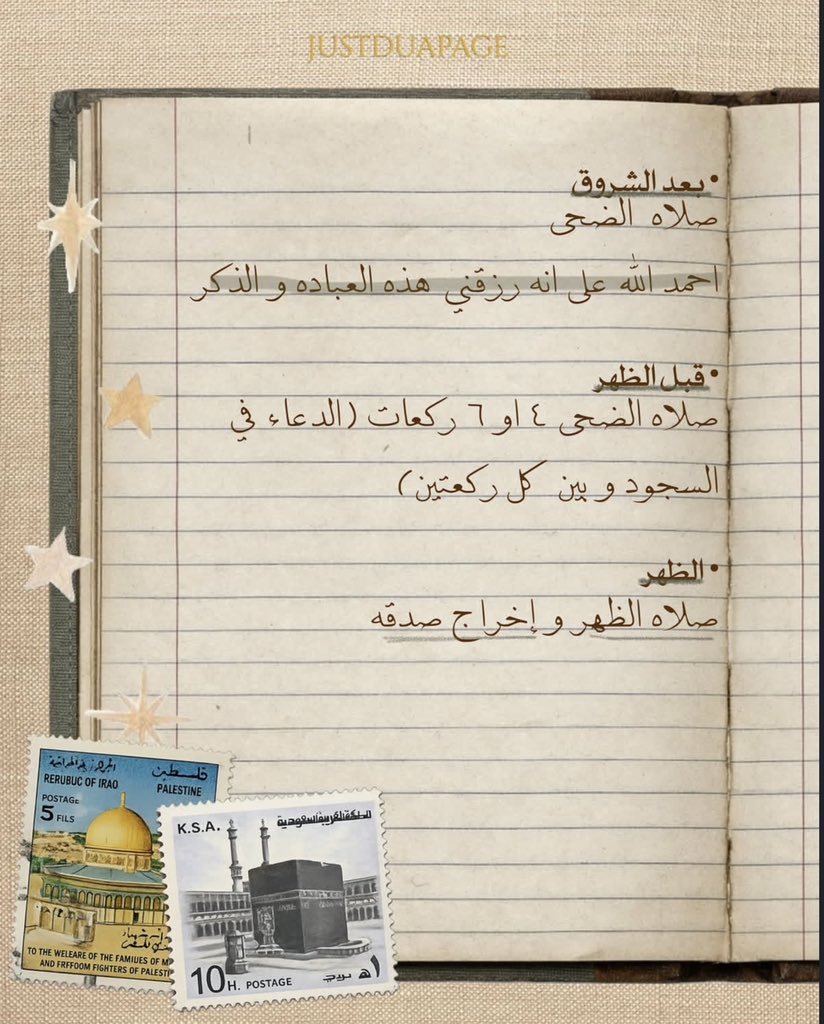 JUSTDUAPAGE
• بعد الشروق
صلاه الضحى
احمد الله على انه رزقني هذه العباده و الذكر
• قبل الظهر
صلاه الضحى ٤ او ٦ ركعات (الدعاء في
السجود و بين كل ركعتين)
• الظهر
صلاه الظهر و إخراج صدقه
فلسطين
RERUBUC OF IRAO
PALESTINE
POSTAGE
5 FILS
TO THE WELEARE OF THE FAMIUES OF M
AND FRFFOOM FIGHTERS OF PALEST
K.S.A.
المملكة العربية السعودية
10 H. POSTAGE